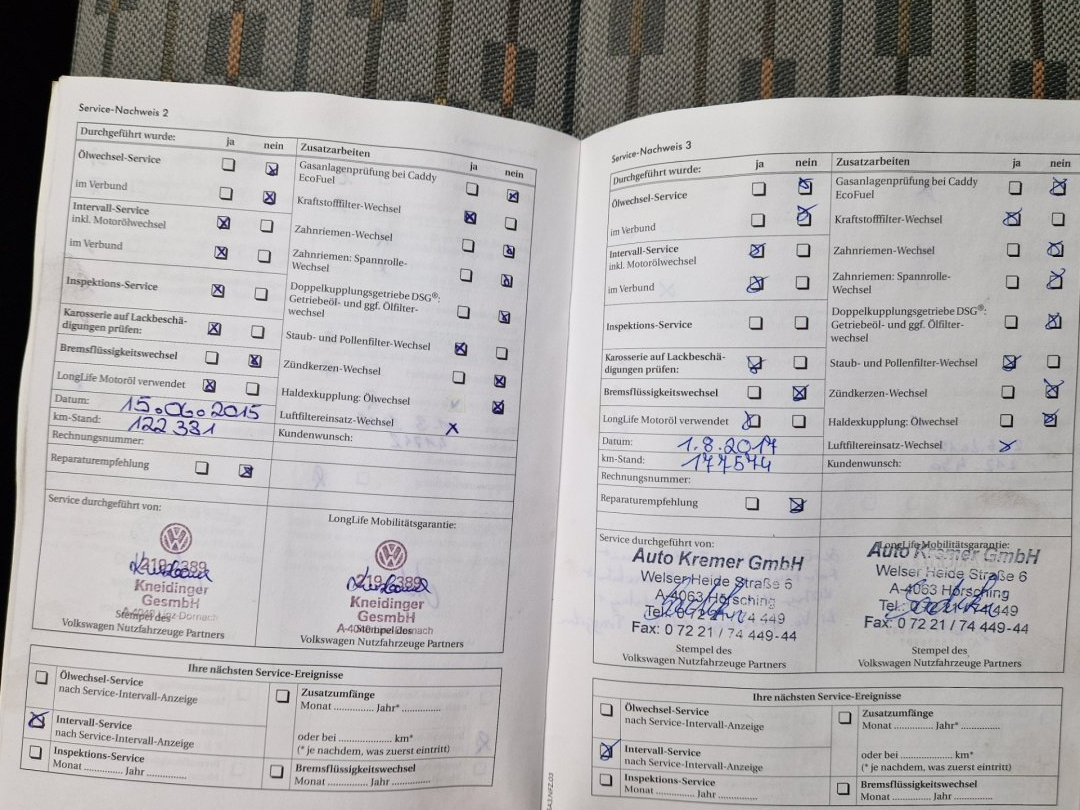 Service-Nachweis 2
Durchgeführt wurde: ja nein
Zusatzarbeiten ja nein
Ölwechsel-Service
im Verbund
Intervall-Service
inkl. Motorölwechsel
im Verbund
Inspektions-Service
Karosserie auf Lackbeschä-
digungen prüfen:
Bremsflüssigkeitswechsel
LongLife Motoröl verwendet
Datum: 15.06.2015
km-Stand: 122 331
Rechnungsnummer:
Reparaturempfehlung
Gasanlagenprüfung bei Caddy
EcoFuel
Kraftstofffilter-Wechsel
Zahnriemen-Wechsel
Zahnriemen: Spannrolle-
Wechsel
Doppelkupplungsgetriebe DSG®:
Getriebeöl- und ggf. Ölfilter-
wechsel
Staub- und Pollenfilter-Wechsel
Zündkerzen-Wechsel
Haldexkupplung: Ölwechsel
Luftfiltereinsatz-Wechsel x
Kundenwunsch:
Service durchgeführt von:
219 389
Kneidinger
GesmbH
Stempel des
Volkswagen Nutzfahrzeuge Partners
LongLife Mobilitätsgarantie:
219 389
Kneidinger
GesmbH
Stempel des
Volkswagen Nutzfahrzeuge Partners
Ihre nächsten Service-Ereignisse
Ölwechsel-Service
nach Service-Intervall-Anzeige
Intervall-Service
nach Service-Intervall-Anzeige
Inspektions-Service
Monat ............ Jahr ............
Zusatzumfänge
Monat ............ Jahr* ............
oder bei ........................ km*
(* je nachdem, was zuerst eintritt)
Bremsflüssigkeitswechsel
Monat ............ Jahr ............
Service-Nachweis 3
Durchgeführt wurde: ja nein
Zusatzarbeiten ja nein
Ölwechsel-Service
im Verbund
Intervall-Service
inkl. Motorölwechsel
im Verbund
Inspektions-Service
Karosserie auf Lackbeschä-
digungen prüfen:
Bremsflüssigkeitswechsel
LongLife Motoröl verwendet
Datum: 1.8.2017
km-Stand: 177574
Rechnungsnummer:
Reparaturempfehlung
Gasanlagenprüfung bei Caddy
EcoFuel
Kraftstofffilter-Wechsel
Zahnriemen-Wechsel
Zahnriemen: Spannrolle-
Wechsel
Doppelkupplungsgetriebe DSG®:
Getriebeöl- und ggf. Ölfilter-
wechsel
Staub- und Pollenfilter-Wechsel
Zündkerzen-Wechsel
Haldexkupplung: Ölwechsel
Luftfiltereinsatz-Wechsel x
Kundenwunsch:
Service durchgeführt von:
Auto Kremer GmbH
Welser Heide Straße 6
A-4063 Hörsching
Tel.: 0 72 21 / 74 449
Fax: 0 72 21 / 74 449-44
Stempel des
Volkswagen Nutzfahrzeuge Partners
LongLife Mobilitätsgarantie:
Auto Kremer GmbH
Welser Heide Straße 6
A-4063 Hörsching
Tel.: 0 72 21 / 74 449
Fax: 0 72 21 / 74 449-44
Stempel des
Volkswagen Nutzfahrzeuge Partners
Ihre nächsten Service-Ereignisse
Ölwechsel-Service
nach Service-Intervall-Anzeige
Intervall-Service
nach Service-Intervall-Anzeige
Inspektions-Service
Monat ............ Jahr ............
Zusatzumfänge
Monat ............ Jahr* ............
oder bei ........................ km*
(* je nachdem, was zuerst eintritt)
Bremsflüssigkeitswechsel
Monat ............ Jahr ............